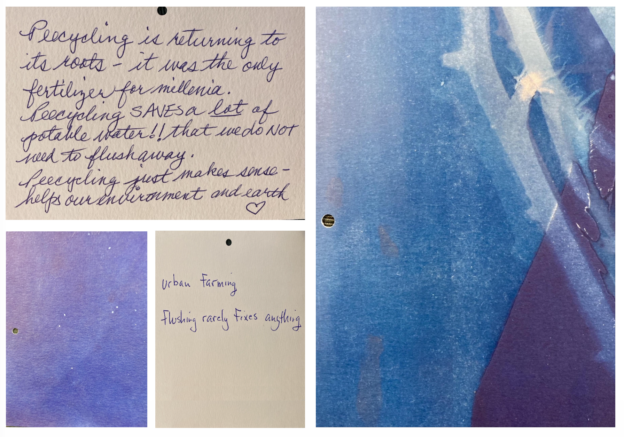 Peecycling is returning to
its roots - it was the only
fertilizer for millenia.
Peecycling SAVES a lot of
potable water!! that we do NOT
need to flush away.
Peecycling just makes sense -
helps our environment and earth
♡
Urban Farming
Flushing rarely Fixes anything